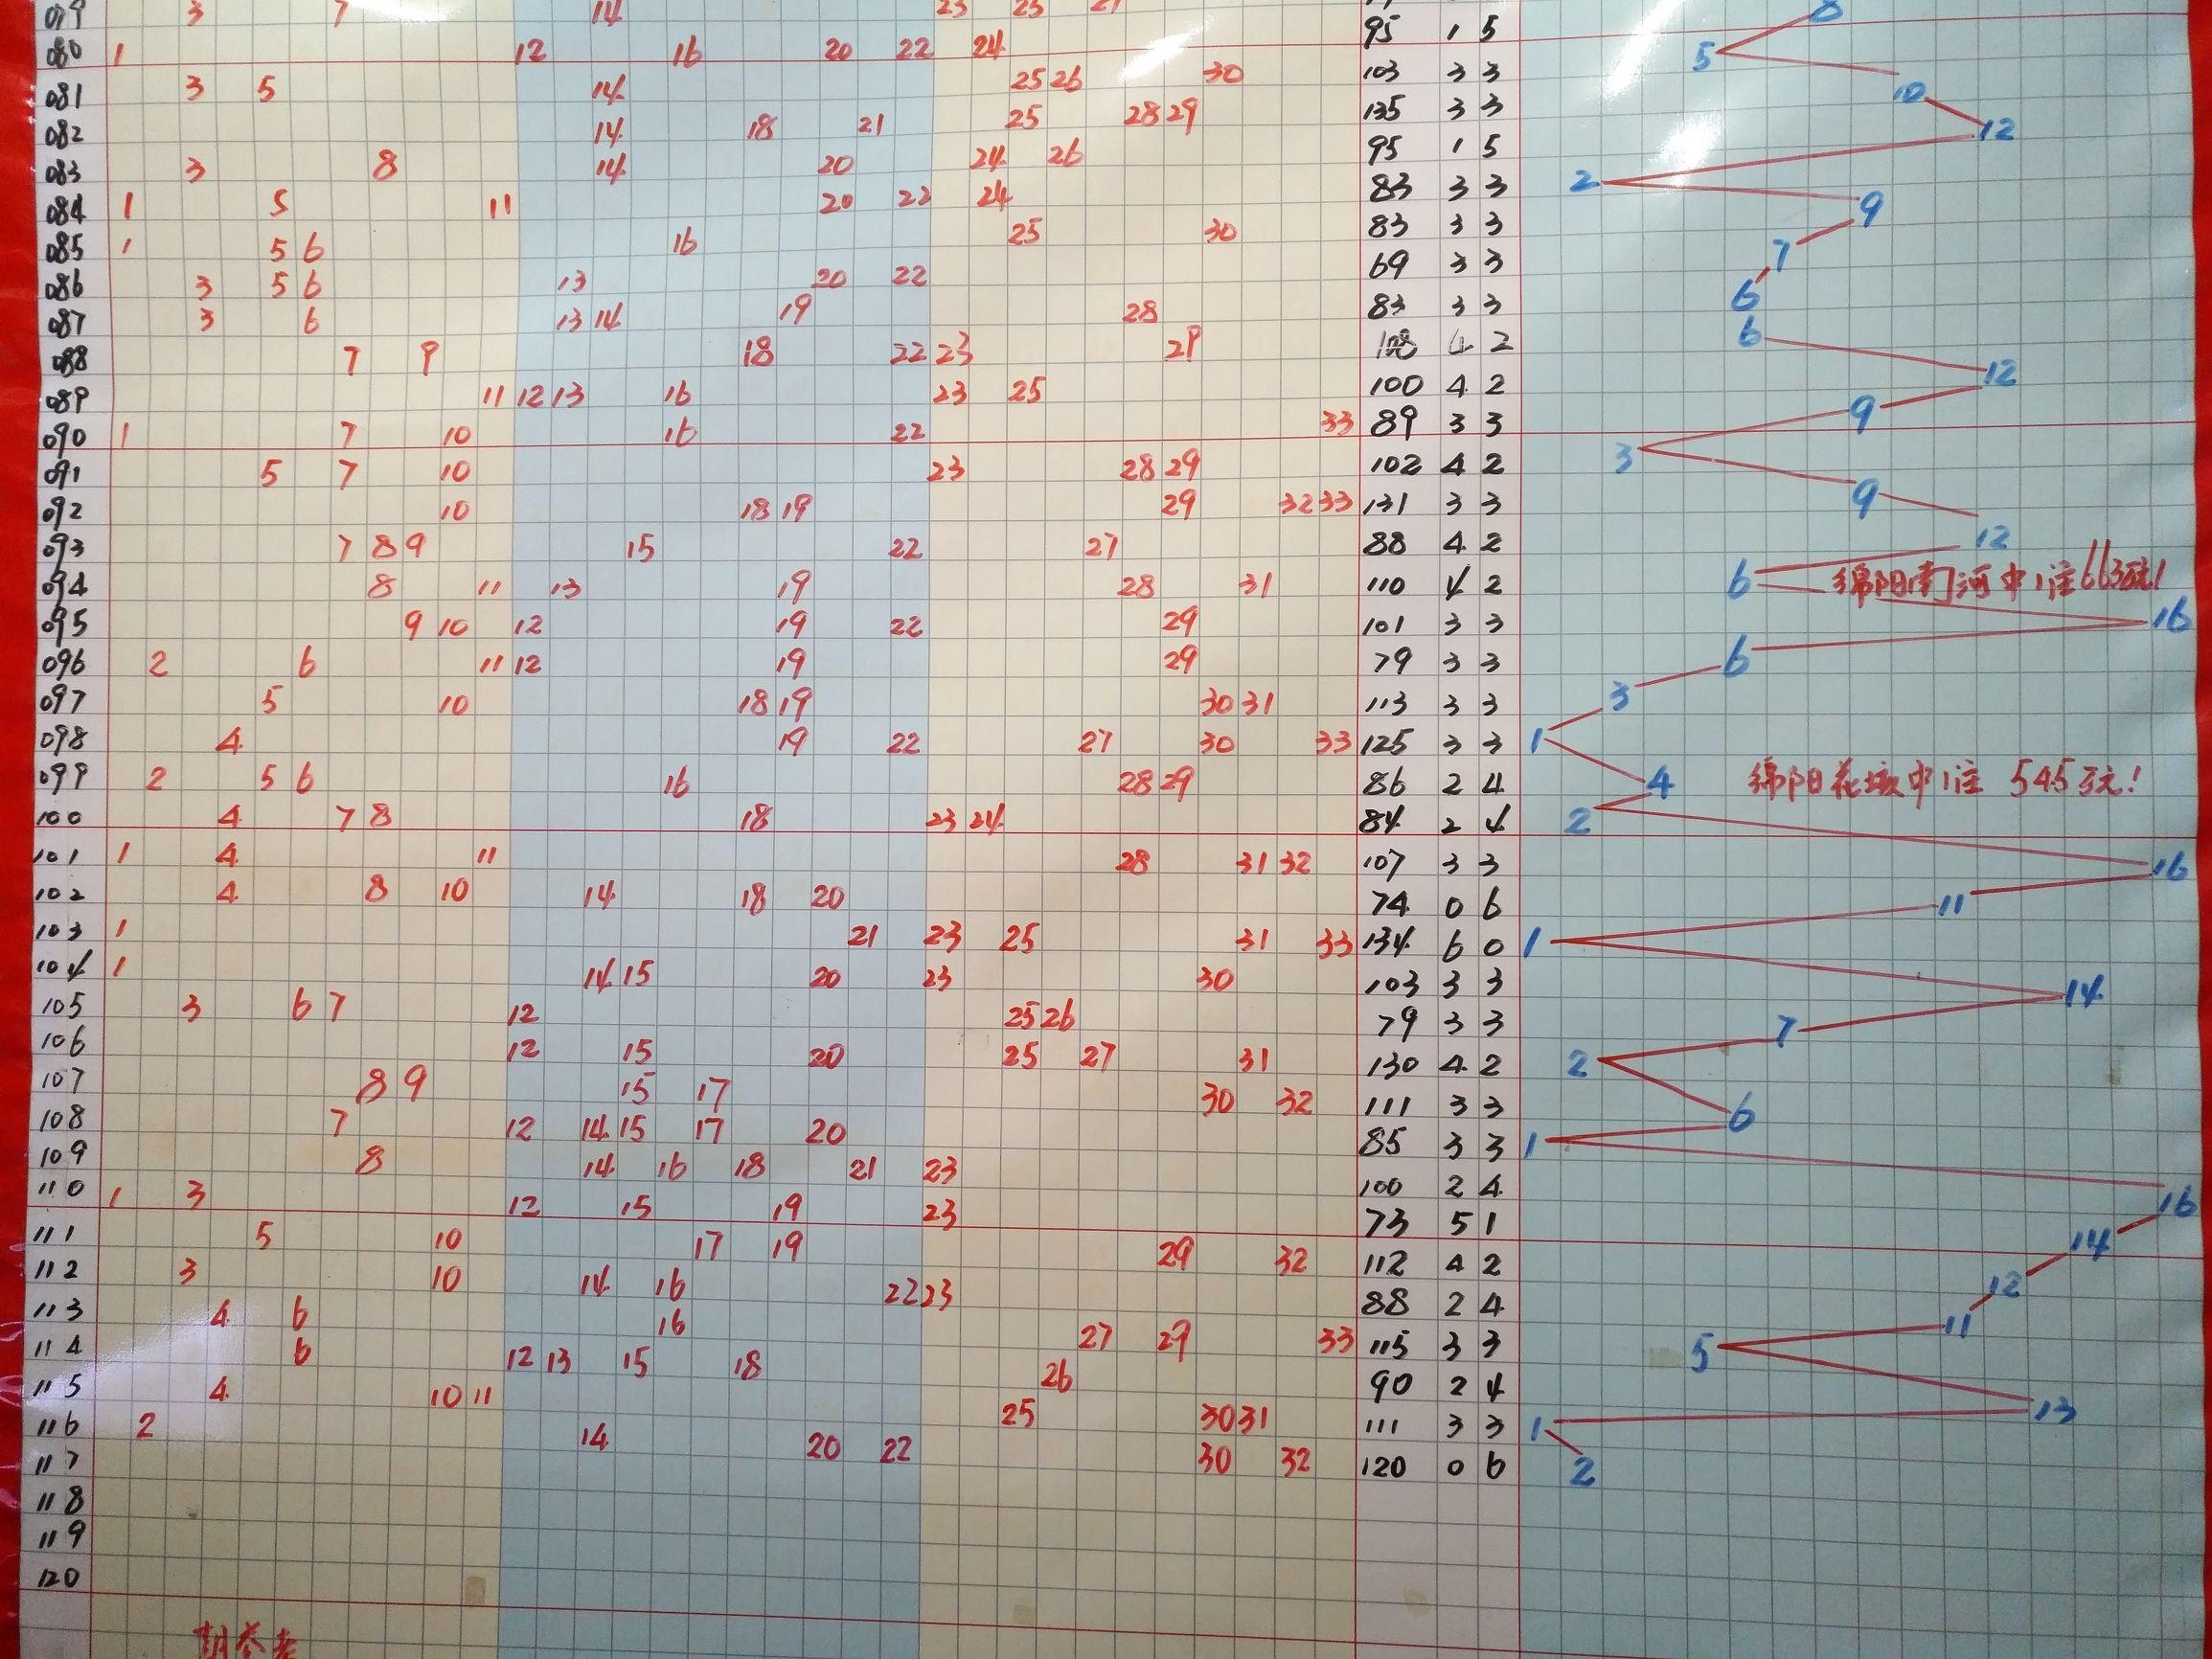 079 3 7 14 23 25 27
080 1 12 16 20 22 24 95 1 5 8
081 3 5 14 25 26 30 103 3 3 5
082 14 18 21 25 28 29 135 3 3 10
083 3 8 14 20 24 26 95 1 5 12
084 1 5 11 20 22 24 83 3 3 2
085 1 5 6 16 25 30 83 3 3 9
086 3 5 6 13 20 22 69 3 3 7
087 3 6 13 14 19 28 83 3 3 6
088 7 9 18 22 23 29 108 4 2 6
089 11 12 13 16 23 25 100 4 2 12
090 1 7 10 16 22 33 89 3 3 9
091 5 7 10 23 28 29 102 4 2 3
092 10 18 19 29 32 33 131 3 3 9
093 7 8 9 15 22 27 88 4 2 12
094 8 11 13 19 28 31 110 4 2 6 绵阳南河中1注663万元!
095 9 10 12 19 22 29 101 3 3 16
096 2 6 11 12 19 29 79 3 3 6
097 5 10 18 19 30 31 113 3 3 3
098 4 19 22 27 30 33 125 3 3 1
099 2 5 6 16 28 29 86 2 4 4 绵阳花垓中1注 545万元!
100 4 7 8 18 23 24 84 2 4 2
101 1 4 11 28 31 32 107 3 3 16
102 4 8 10 14 18 20 74 0 6 11
103 1 21 23 25 31 33 134 6 0 1
104 1 14 15 20 23 30 103 3 3 14
105 3 6 7 12 25 26 79 3 3 7
106 12 15 20 25 27 31 130 4 2 2
107 8 9 15 17 30 32 111 3 3 6
108 7 12 14 15 17 20 85 3 3 1
109 8 14 16 18 21 23 100 2 4 16
110 1 3 12 15 19 23 73 5 1 14
111 5 10 17 19 29 32 112 4 2 12
112 3 10 14 16 22 23 88 2 4 11
113 4 6 16 27 29 33 115 3 3 5
114 6 12 13 15 18 26 90 2 4 13
115 4 10 11 25 30 31 111 3 3 1
116 2 14 20 22 30 32 120 0 6 2
117
118
119
120
期参考